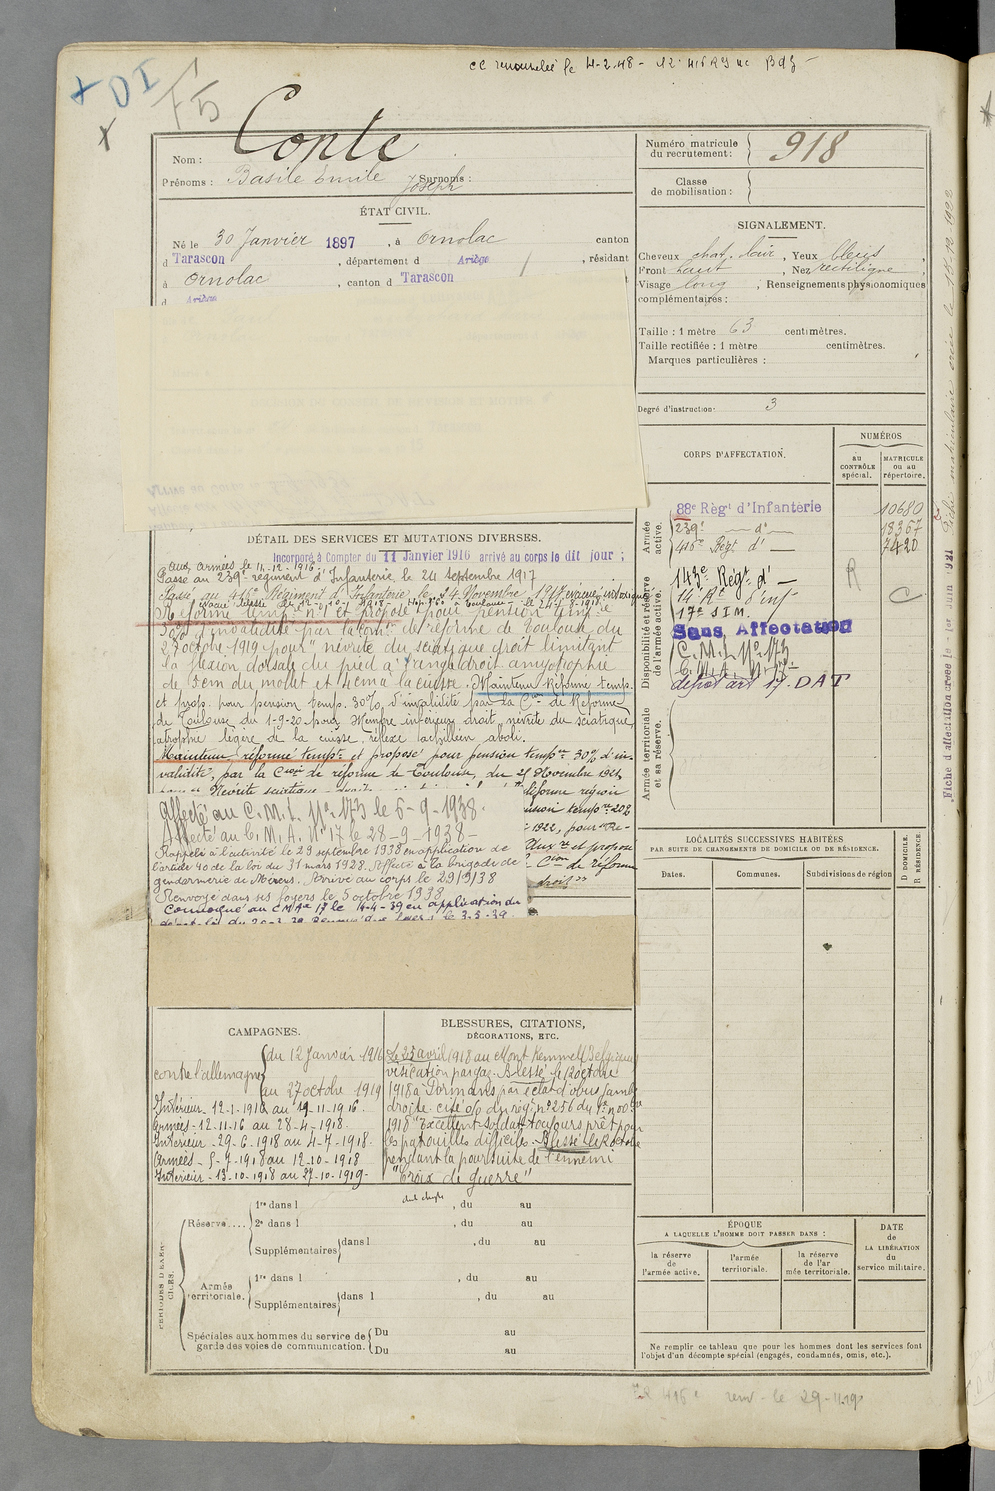 cc renouvelée le 4-2-48 -
+ DI
F5
Nom : Conte
Prénoms : Basile Emile Joseph Surnoms :
Numéro matricule du recrutement : 918
Classe de mobilisation :
ÉTAT CIVIL.
Né le 30 Janvier 1897, à Ornolac canton
d Tarascon, département d Ariège, résidant
à Ornolac, canton d Tarascon
d Ariège
SIGNALEMENT.
Cheveux chat. clair, Yeux bleus,
Front haut, Nez rectiligne
Visage long; Renseignements physionomiques
complémentaires :
Taille : 1 mètre 63 centimètres.
Taille rectifiée : 1 mètre centimètres.
Marques particulières :
Degré d'instruction. 3
CORPS D'AFFECTATION.
NUMÉROS
au CONTRÔLE spécial.
MATRICULE ou au répertoire.
Armée active.
88e Régt d'Infanterie 10680
239e — d° — 18367
416e Régt d° — 7420
Disponibilité et réserve de l'armée active.
143e Régt d° — R
14e Rt d'inf C
17e SIM
Sans Affectation
C.M.I. N° 173
C.M.A. N° 17
dépôt art 17. DAT
Armée territoriale et sa réserve.
DÉTAIL DES SERVICES ET MUTATIONS DIVERSES.
Incorporé à Compter du 11 Janvier 1916 arrivé au corps le dit jour ;
aux armées le 11-12-1916.
Passé au 239e régiment d'Infanterie le 24 Septembre 1917
Passé au 416e Régiment d'Infanterie le 14 Novembre 1917 évacué intoxiqué
Réformé temp. n°1 et proposé pour pension temp.
30% d'invalidité par la Comon de réforme de Toulouse du
27 octobre 1919 pour " névrite du sciatique droit limitant
la flexion dorsale du pied à l'angle droit amyotrophie
de 3cm du mollet et 4cm à la cuisse. Maintenu Réformé temp.
et prop. pour pension temp. 30% d'invalidité par la Con de Réforme
de Toulouse du 1-9-20 pour Membre inférieur droit, névrite du sciatique,
atrophie légère de la cuisse, réflexe achilléen aboli.
Maintenu réformé tempre et proposé pour pension tempre 30% d'in-
validité, par la Cion de réforme de Toulouse, du 21 Novembre 1921
Affecté au C.M.I. N° 173 le 6-9-1938.
Affecté au C.M.A. N° 17 le 28-9-1938-
Rappelé à l'activité le 29 septembre 1938 en application de
l'article 40 de la loi du 31 mars 1928. Affecté à la brigade de
gendarmerie de Mérens. Arrivé au corps le 29/9/38
Renvoyé dans ses foyers le 5 octobre 1938
Convoqué au CMA 17 le 14-4-39 en application du
réforme région
nsion tempre 20%
1922, pour "Né-
et proposé
Cion de réforme
droit"
LOCALITÉS SUCCESSIVES HABITÉES
PAR SUITE DE CHANGEMENTS DE DOMICILE OU DE RÉSIDENCE.
Dates. Communes. Subdivisions de région
D DOMICILE. R RÉSIDENCE.
CAMPAGNES.
contre l'allemagne du 12 Janvier 1916
au 27 octobre 1919
Intérieur - 12-1-1916 au 11-11-1916.
Armées - 12-11-16 au 28-4-1918.
Intérieur - 29-6-1918 au 4-7-1918.
Armées - 5-7-1918 au 12-10-1918
Intérieur - 13-10-1918 au 27-10-1919-
BLESSURES, CITATIONS,
DÉCORATIONS, ETC.
Le 25 avril 1918 au Mont Kemmel (Belgique)
vésication par gaz. Blessé le 12 octobre
1918 à Dormans par éclat d'obus jambe
droite. cité o/o du régt n° 256 du
1918 "Excellent Soldat toujours prêt pour
les patrouilles difficiles. Blessé le 12 octobre
pendant la poursuite de l'ennemi
"Croix de Guerre"
PÉRIODES D'EXERCICES.
Réserve.... 1re dans l , du au
2e dans l , du au
Supplémentaires dans l , du au
Armée territoriale. 1re dans l , du au
Supplémentaires dans l , du au
Spéciales aux hommes du service de garde des voies de communication. Du au
Du au
ÉPOQUE
A LAQUELLE L'HOMME DOIT PASSER DANS :
la réserve de l'armée active.
l'armée territoriale.
la réserve de l'armée territoriale.
DATE de LA LIBÉRATION du service militaire.
Ne remplir ce tableau que pour les hommes dont les services font
l'objet d'un décompte spécial (engagés, condamnés, omis, etc.).
416e renv. le 29-11-19
Fiche d'affectation créée le 1er Juin 1921 Fiche matriculaire créée le 15-12-1922